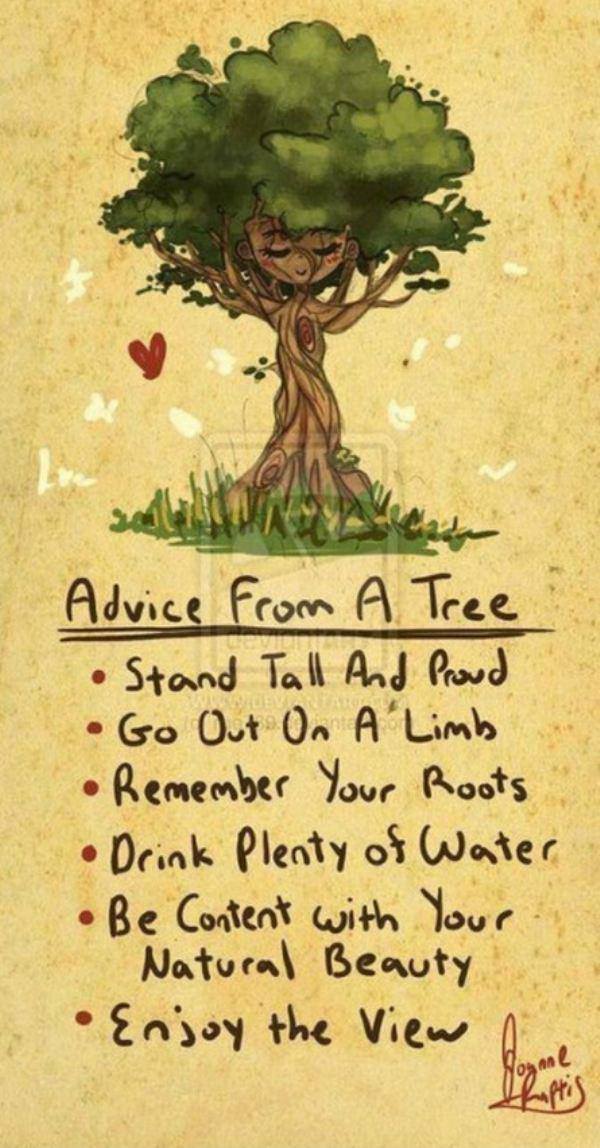 Luc
Advice From A Tree
• Stand Tall And Proud
• Go Out On A Limb
• Remember Your Roots
• Drink Plenty of Water
• Be Content with Your
Natural Beauty
• Enjoy the View
Joanne
Kraftis